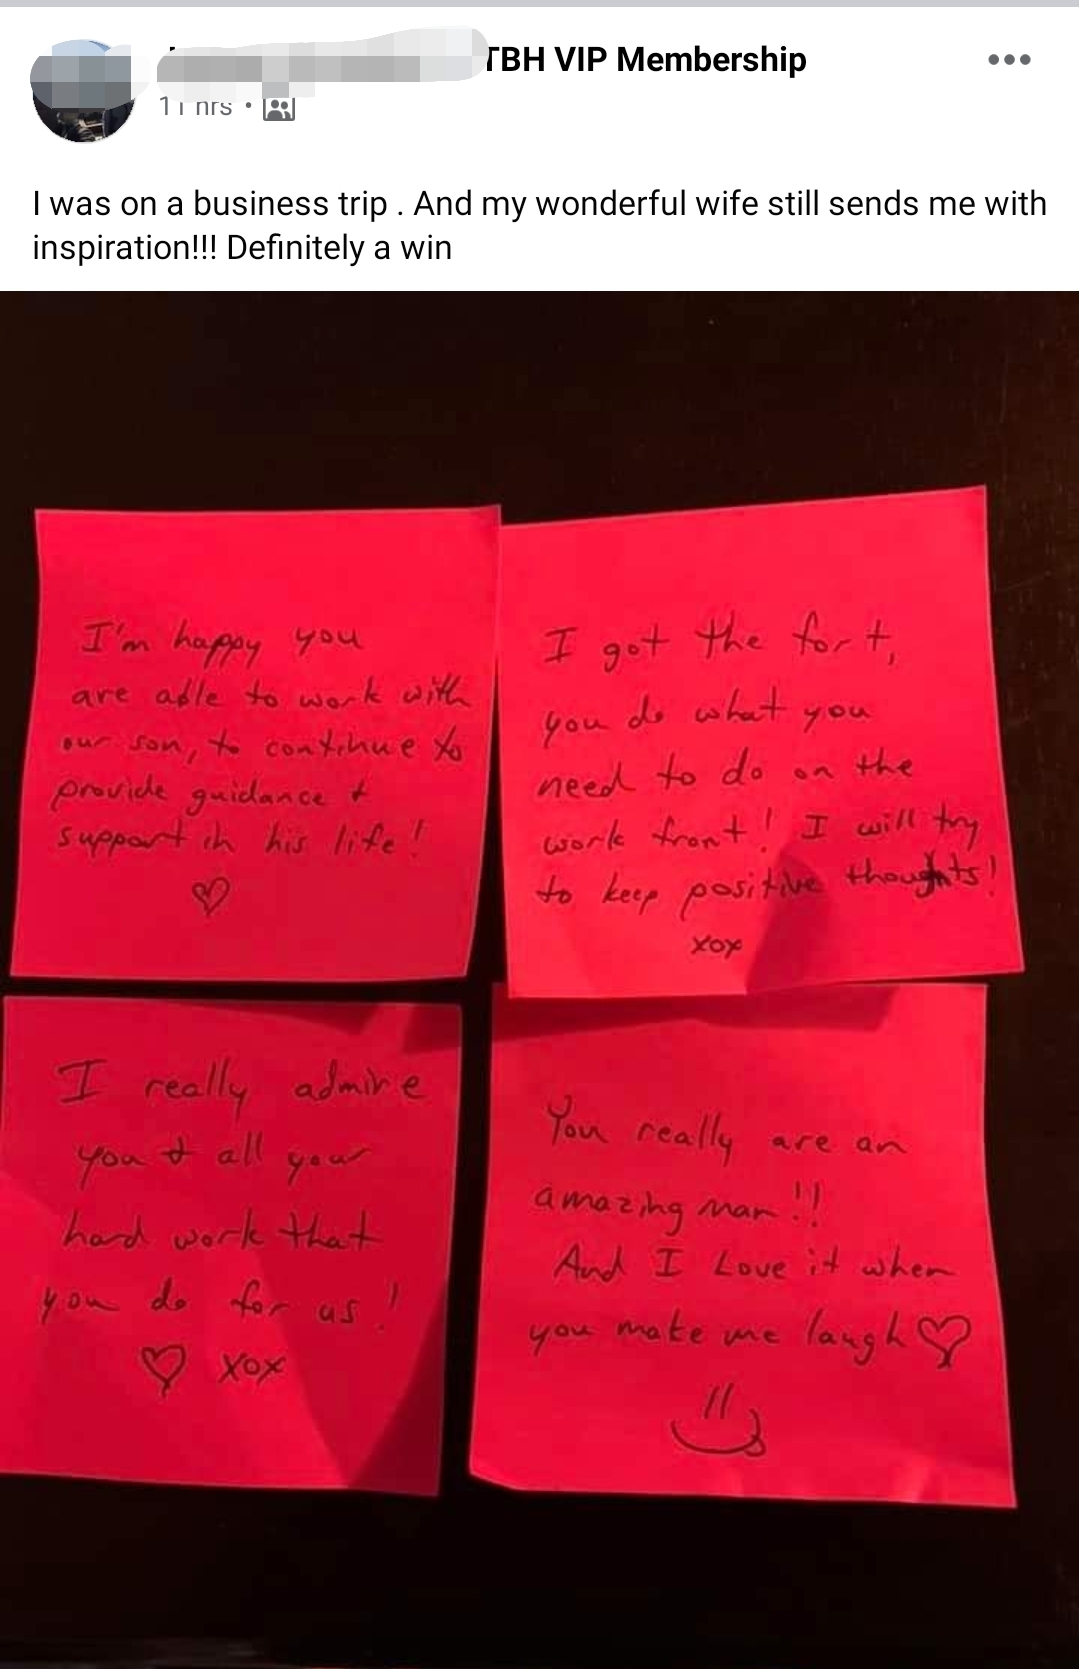 TBH VIP Membership
11 hrs
I was on a business trip . And my wonderful wife still sends me with
inspiration!!! Definitely a win
I'm happy you
are able to work with
our son, to continue to
provide guidance &
support in his life!
♡
I got the fort,
you do what you
need to do on the
work front! I will try
to keep positive thoughts!
xox
I really admire
you & all your
hard work that
you do for us!
♡ xox
You really are an
amazing man!!
And I Love it when
you make me laugh ♡